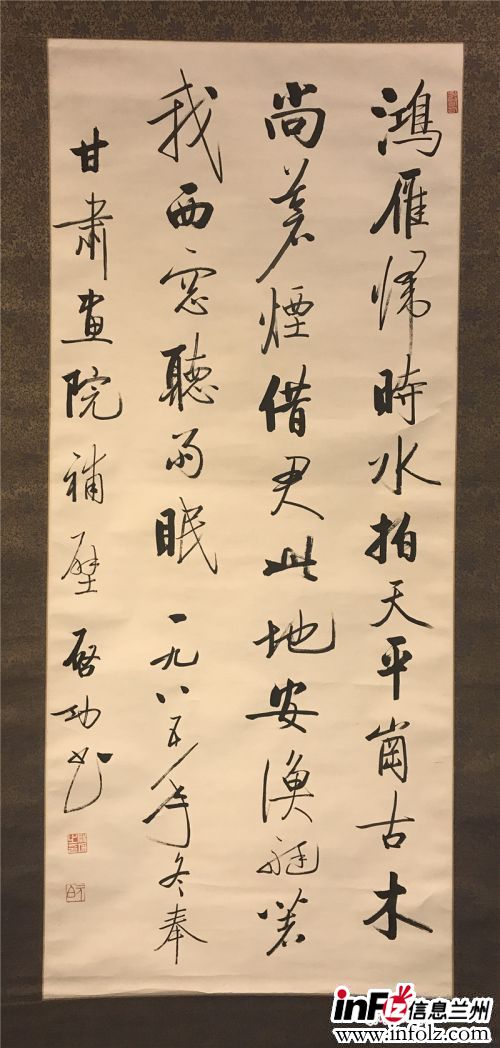 鴻雁歸時水拍天平崗古木
尚蒼煙借君此地安漁艇著
我西窓聽雨眠 一九八五年冬奉
甘肅畫院補壁 啓功书
infLZ 信息兰州
www.infolz.com